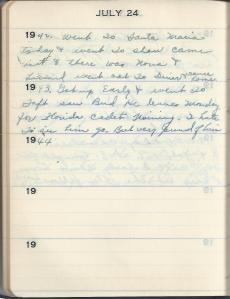 JULY 24
1942. Went to Santa Maria
today & went to show came
& there was Nona &
went out to Dinner & came home
1943. Got up Early & went to
Taft saw Bud. He leaves Monday
for Florida, cadet training. I hate
to see him go. But very proud of him
1944
19
19